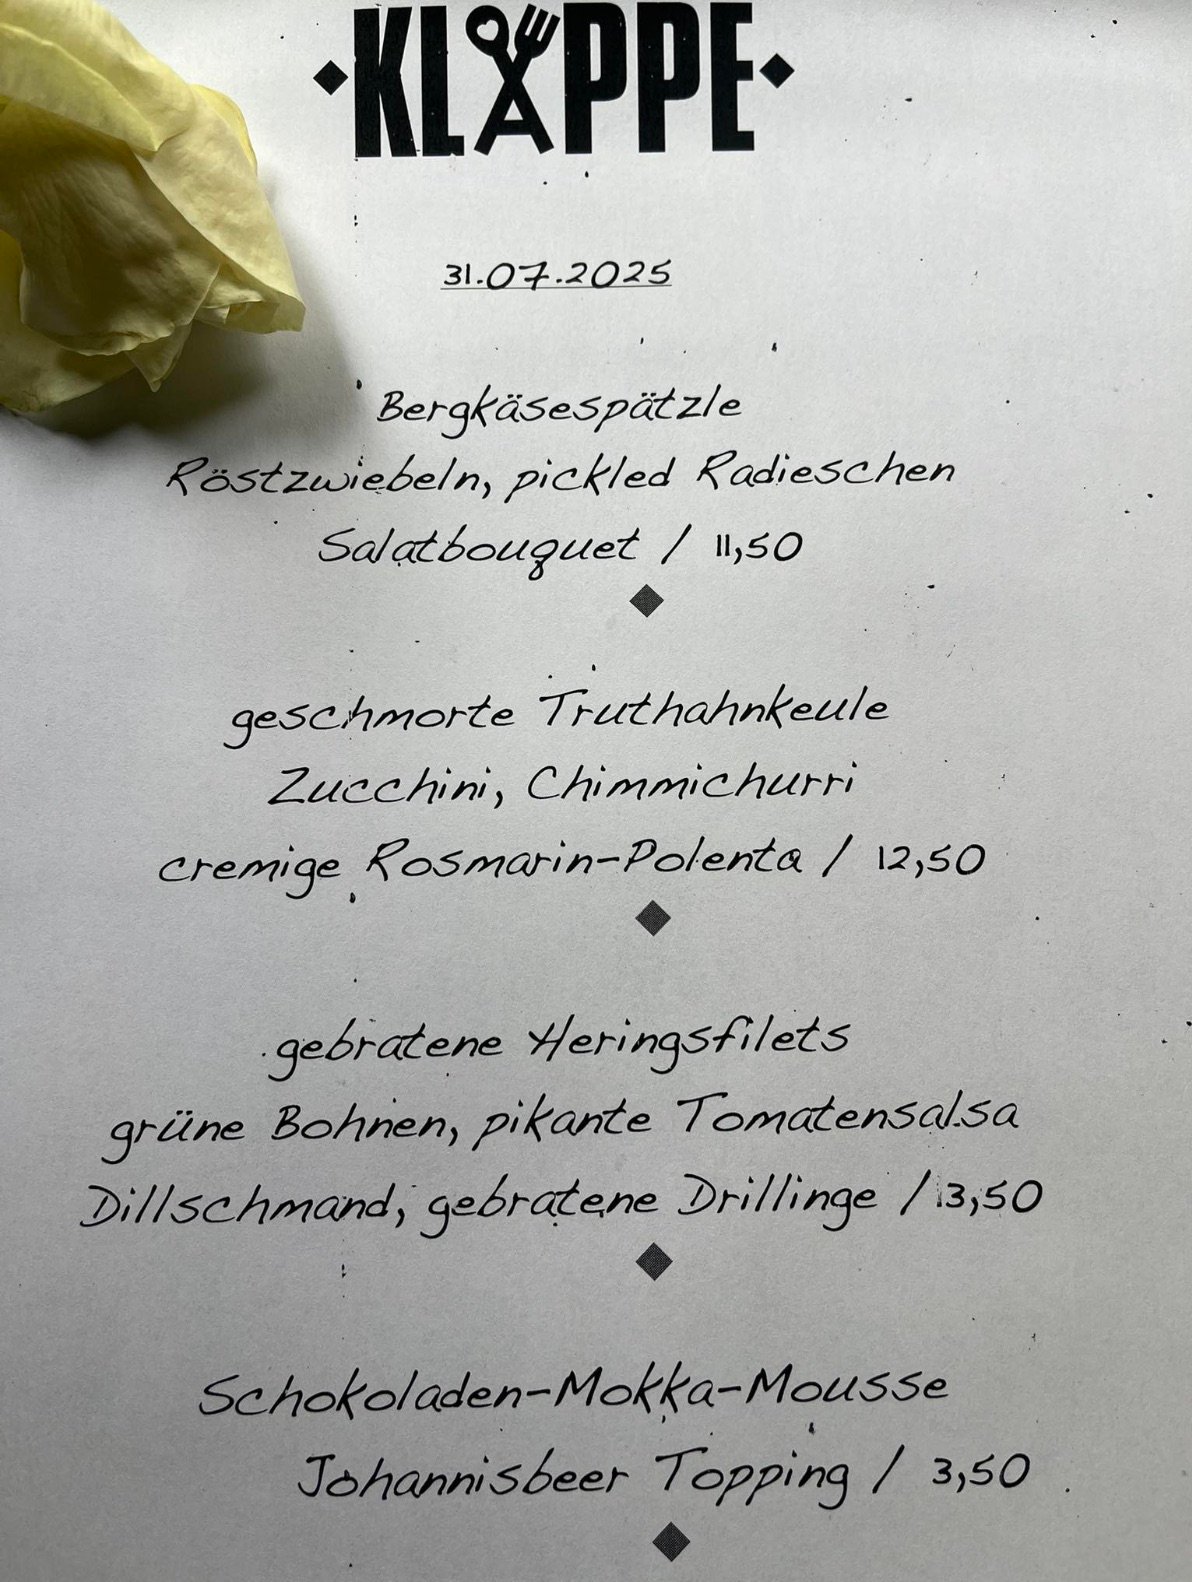 KLAPPE
31.07.2025
Bergkäsespätzle
Röstzwiebeln, pickled Radieschen
Salatbouquet / 11,50
geschmorte Truthahnkeule
Zucchini, Chimmichurri
cremige Rosmarin-Polenta / 12,50
gebratene Heringsfilets
grüne Bohnen, pikante Tomatensalsa
Dillschmand, gebratene Drillinge / 13,50
Schokoladen-Mokka-Mousse
Johannisbeer Topping / 3,50